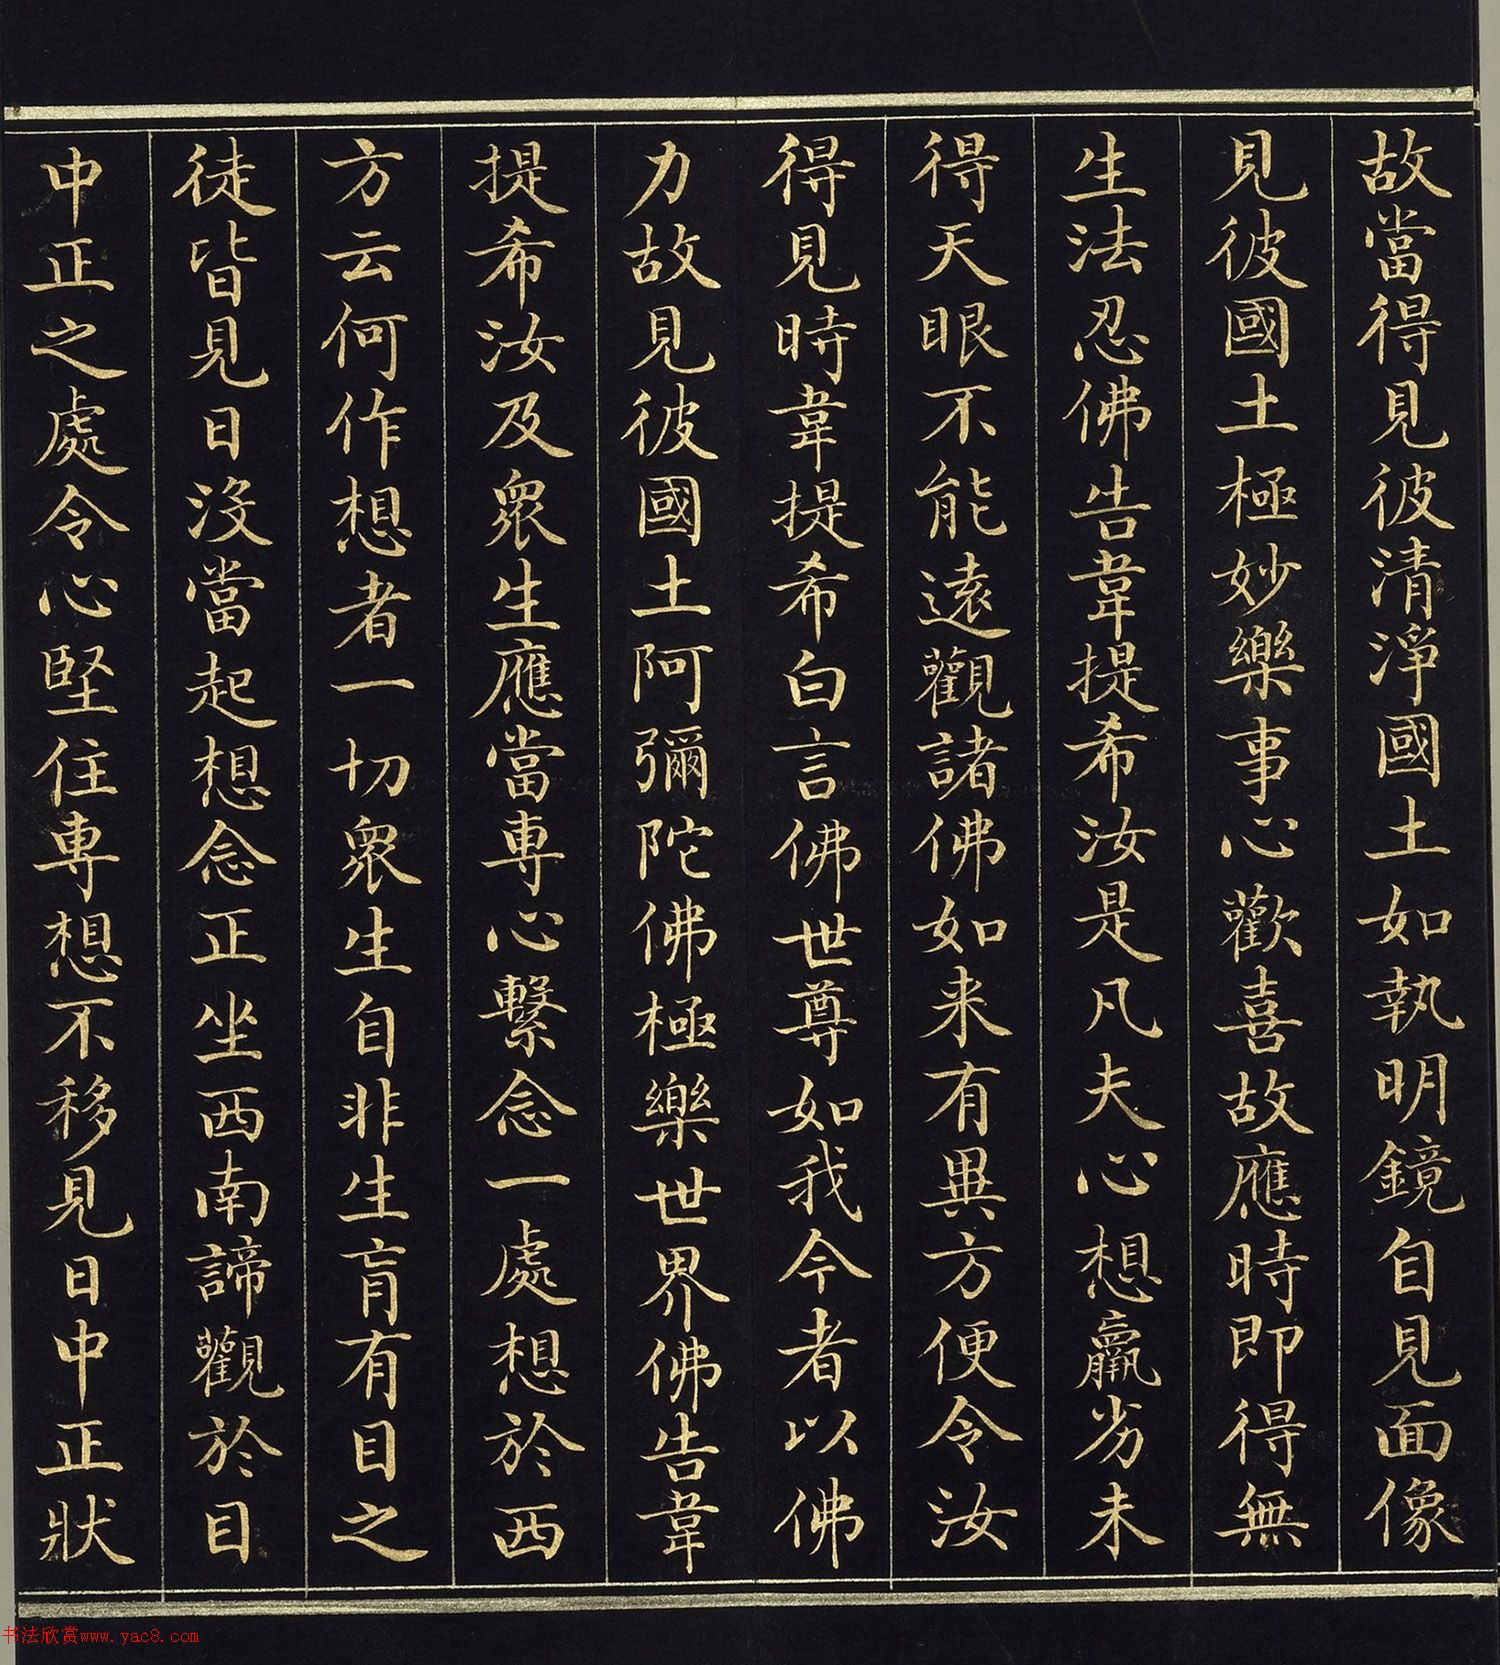 故當得見彼清淨國土如執明鏡自見面像
見彼國土極妙樂事心歡喜故應時即得無
生法忍佛告韋提希汝是凡夫心想羸劣未
得天眼不能遠觀諸佛如来有異方便令汝
得見時韋提希白言佛世尊如我今者以佛
力故見彼國土阿彌陀佛極樂世界佛告韋
提希汝及衆生應當專心繫念一處想於西
方云何作想者一切衆生自非生肓有目之
徒皆見日沒當起想念正坐西南諦觀於目
中正之處令心堅住專想不移見日中正狀
书法欣赏www.yac8.com